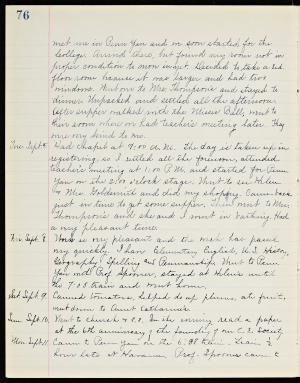 76
met me in Penn Yan and we soon started for the
College. Arrived there, but found my room not in
proper condition to move in yet. Decided to take a 2d.
floor room because it was larger and had two
windows. Went over to Mrs. Thompson's and stayed to
dinner. Unpacked and settled all the afternoon.
After supper walked with the Misses Ball, went to
their room where we had teacher's meeting later. They
are very kind to me.
Tue. Sept.
Had Chapel at 9:00 A.M. The day is taken up in
registering, so I settled all the forenoon, attended
teacher's meeting at 1:00 P.M. and started for Penn
Yan on the 3:00 o'clock stage. Went to see Helen
Mrs. Goldsmith and did my shopping. Came back
just in time to get some supper. Then went to Mrs.
Thompson's and she and I went in bathing. Had
a very pleasant time.
Fri. Sept. 8
Work is very pleasant and the week has passed
very quickly. I have Elementary English, U.S. History,
Geography, Spelling and Penmanship. Went to Penn
Yan with Prof. Spooner, stayed at Helen's until
the 7:05 train and went home.
Sat. Sept. 9.
Canned tomatoes, helped do up plums, ate fruit,
went down to Aunt Catharine's.
Sun. Sept. 10,
Went to church & S.S. In the evening read a paper
at the 6th anniversary of the founding of our C.E. Society
Mon. Sept. 11.
Came to Penn Yan on the 6:38 train. Train 2
hours late at Havana. Prof. Spooner came